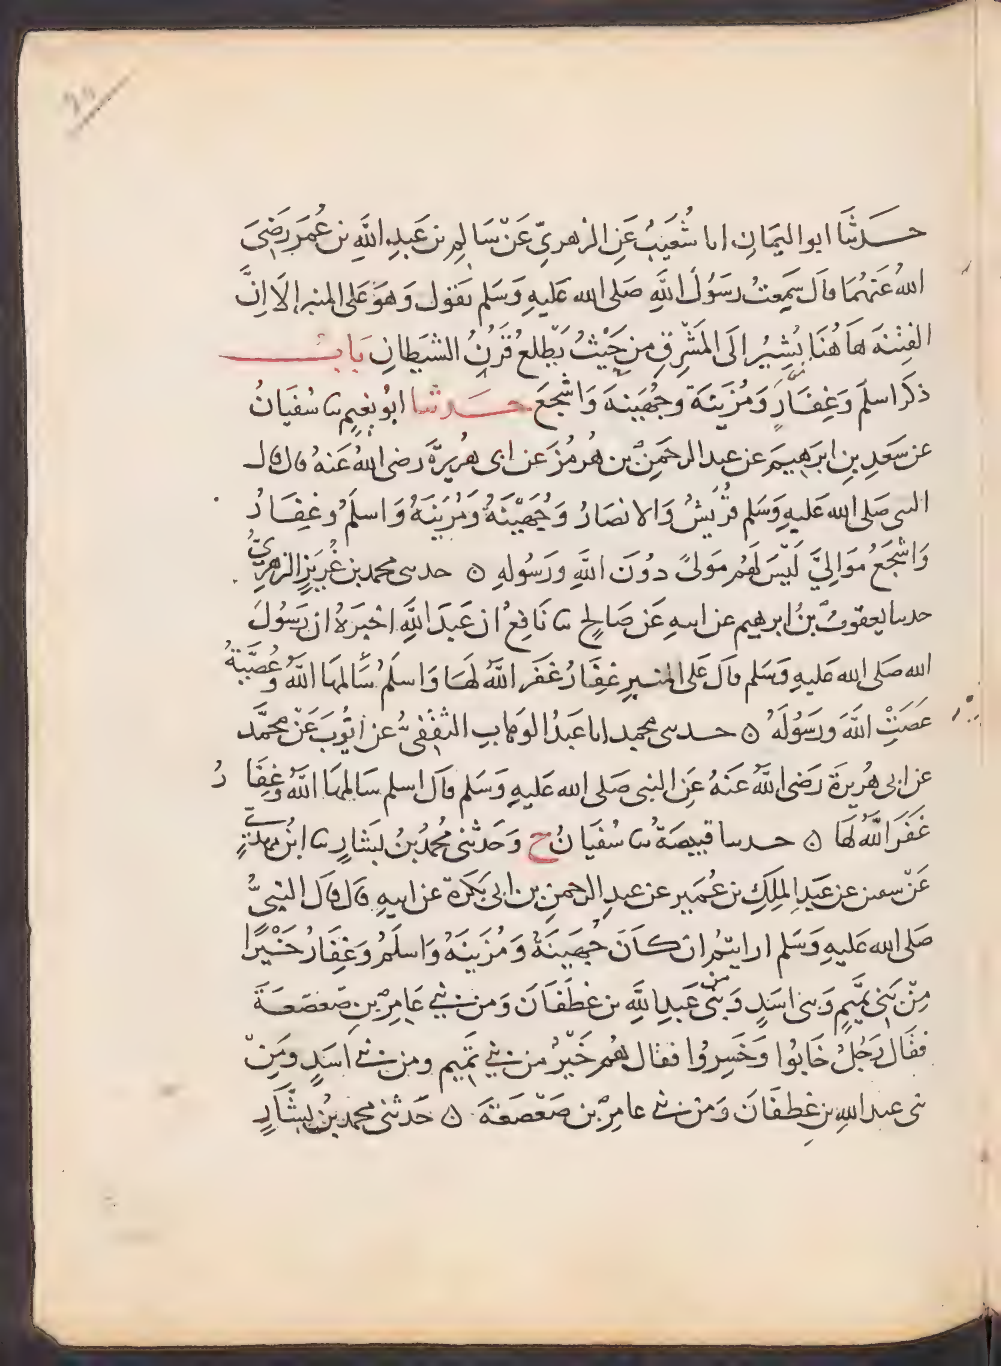 حَدثنَا ابو اليمَانِ انا شُعَيبٌ عَنِ الزهريّ عَنْ سَالِمِ بن عَبدِ اللَّهِ بن عُمَر رَضِيَ
اللهُ عَنهُمَا قال سَمِعتُ رسَولَ اللَّهِ صَلى الله عَليهِ وَسَلم يقول وَهوَ على المنبرِ الَا اِنَّ
الفِتْنَة هَاهُنَا يُشِيرُ الَى المَشْرِقِ مِن حَيْثُ يَطلعُ قَرنُ الشيَطانِ بَابُ
ذكر اسلَم وَغِفَارَ وَمُزَينَة وجُهَينَة وَاشْجَعَ حَدثنا ابُو نعَيمٍ نا سُفيَانُ
عن سَعدِ بنِ ابرَهيمَ عن عبد الرحمَنِ بن هُرمُزَ عن ابى هُريرَةَ رضى اللهُ عَنهُ قال قال
النبي صَلى الله عَليهِ وَسَلم قُرَيشٌ وَالانصَارُ وَجُهَيْنَةُ وَمُزَينَةُ وَاسلَمُ وغِفَارُ
وَاشْجَعُ مَوَالِيَّ لَيْسَ لَهُم مَولىً دوُنَ اللَّهِ ورَسُولهِ ۞ حدثنى محمد بن غُرَيَرٍ الزهريُّ
حدثنا يعقوبُ بنُ ابرهيم عن ابيهِ عَن صَالحٍ نا نَافِعٌ ان عَبدَ اللَّهِ اخبرَهُ ان رَسُولَ
الله صَلى الله عَليهِ وَسَلم قال عَلى المنبرِ غِفَارُ غَفَر اللَّهُ لهَا وَاسلَمُ سَالمهَا اللَّهُ وَعُصَيَّةُ
عَصَتِ اللَّهَ ورسَولَهُ ۞ حدثنى محمد انا عَبدُ الوهابِ الثقَفىُّ عن ايُّوبَ عَنْ محمَّد
عن ابى هُرِيرَة رَضى اللَّهُ عَنهُ عَنِ النبى صَلى الله عَليهِ وَسَلم قال اسلم سَالمهَا اللَّهُ وَغِفَارُ
غَفَر اللَّهُ لهَا ۞ حدثنا قبيصَةُ نا سُفيَانُ ح وَحَدثنى مُحمدُ بنُ بَشارٍ نا ابنُ مهديٍّ
عَنْ سفين عن عَبدِ المَلِكِ بن عُميرٍ عن عبدِ الرحمنِ بن ابى بَكرَة عن ابيهِ قال قال النبىُّ
صَلى الله عَليهِ وَسَلم ارايتم ان كانَ جُهَينَةُ وَمُزَينَةُ وَاسلَمُ وَغِفَارُ خَيْرًا
مِنْ بَنى تميمٍ وَبنى اسَدٍ وَمِن بنى عَبدِ اللَّهِ بن غطَفَانَ وَمن بنى عَامِرِ بنِ صَعصَعَةَ
فقَال رَجُلٌ خَابُوا وَخَسِروُا فقال هُم خَيْرٌ من بنى تميمٍ ومن بنى اسَدٍ ومِنْ
بنى عبد اللهِ بنِ غِطفَانَ وَمن بنى عامِرِ بن صَعْصَعَةَ ۞ حَدثنى محمد بنُ بشَّارٍ